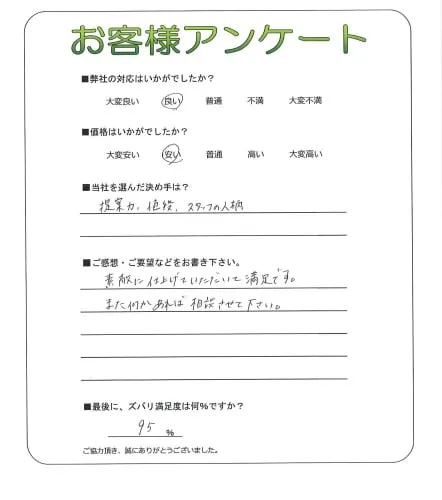 お客様アンケート
■弊社の対応はいかがでしたか？
大変良い 良い 普通 不満 大変不満
■価格はいかがでしたか？
大変安い 安い 普通 高い 大変高い
■当社を選んだ決め手は？
提案力、値段、スタッフの人柄
■ご感想・ご要望などをお書き下さい。
素敵に仕上げていただいて満足です。
また何かあれば相談させて下さい。
■最後に、ズバリ満足度は何％ですか？
95 ％
ご協力頂き、誠にありがとうございました。